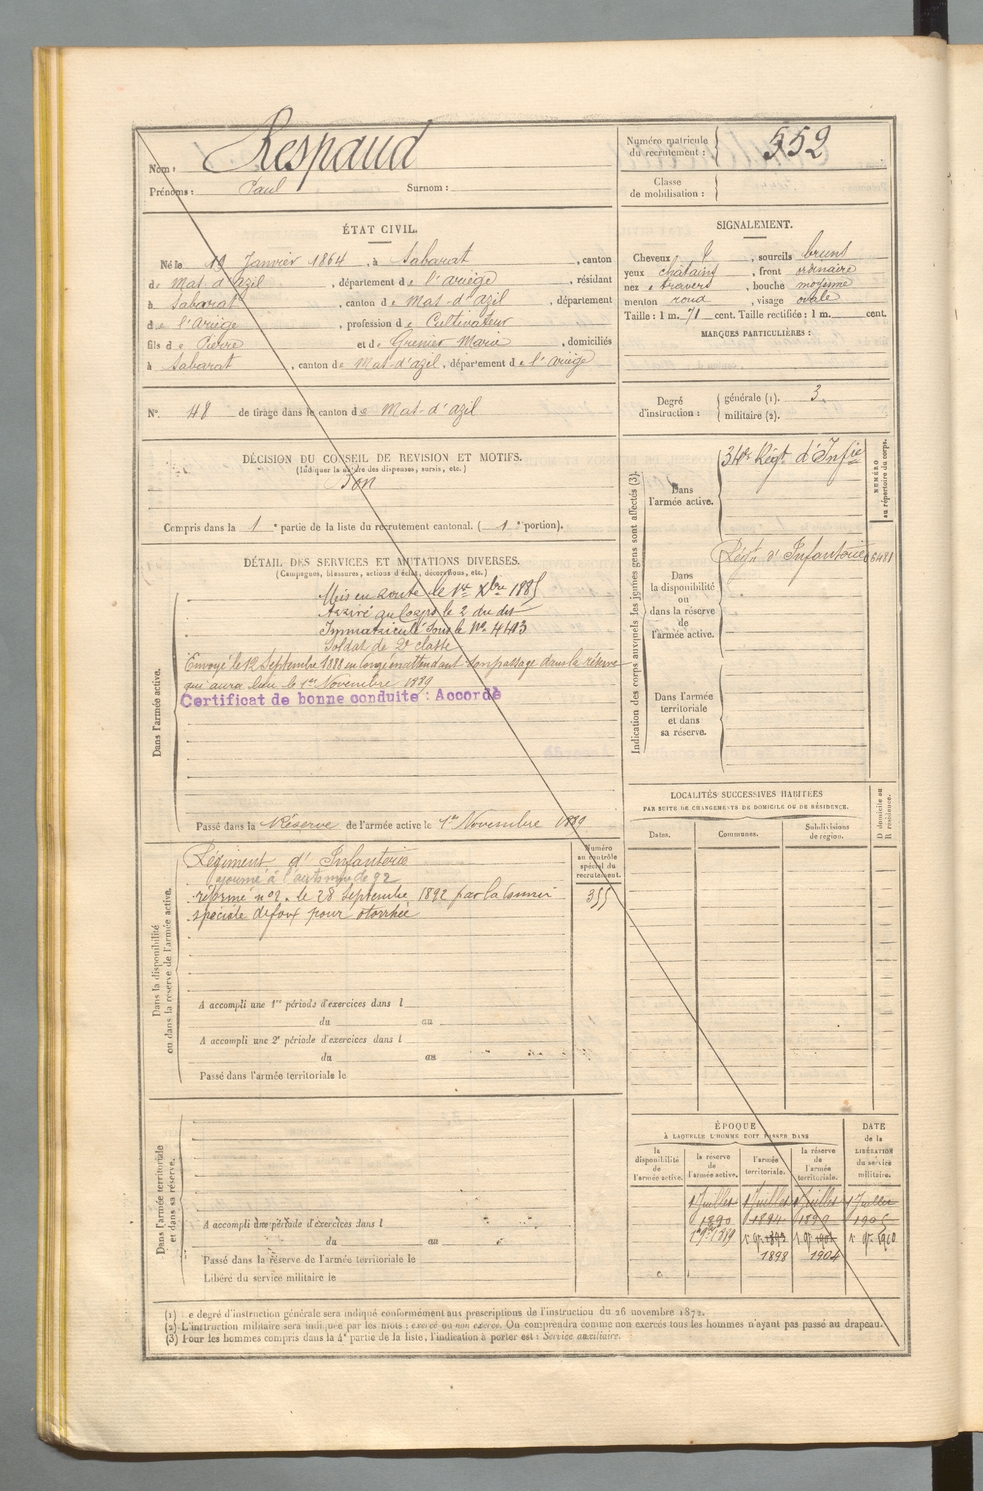 Nom : Respaud
Prénoms : Paul Surnom :
Numéro matricule du recrutement : 552
Classe de mobilisation :
ÉTAT CIVIL.
Né le 19 Janvier 1864, à Sabarat, canton
de Mas-d'azil, département de l'ariège, résidant
à Sabarat, canton de Mas-d'azil, département
de l'Ariège, profession de Cultivateur
fils de Pierre et de Grenier Marie, domiciliés
à Sabarat, canton de Mas-d'azil, département de l'ariège
N° 48 de tirage dans le canton de Mas-d'azil
SIGNALEMENT.
Cheveux &, sourcils bruns
yeux châtains, front ordinaire
nez , bouche moyenne
menton rond, visage ovale
Taille : 1 m. 71 cent. Taille rectifiée : 1 m. cent.
MARQUES PARTICULIÈRES :
Degré d'instruction : générale (1). 3.
militaire (2).
DÉCISION DU CONSEIL DE REVISION ET MOTIFS.
(Indiquer la nature des dispenses, sursis, etc.)
Bon
Compris dans la 1e partie de la liste du recrutement cantonal. (1e portion).
DÉTAIL DES SERVICES ET MUTATIONS DIVERSES.
(Campagnes, blessures, actions d'éclat, décorations, etc.)
Dans l'armée active.
Mis en route le 1er Xbre 1885
Arrivé au Corps le 2 du dit
Immatriculé sous le No. 4443
Soldat de 2e classe
Envoyé le 12 Septembre 1888 en congé en attendant son passage dans la réserve
qui aura lieu le 1er Novembre 1889
Certificat de bonne conduite : Accordé
Passé dans la Réserve de l'armée active le 1er Novembre 1889
Indication des corps auxquels les jeunes gens sont affectés (3).
NUMÉRO au répertoire du corps.
Dans l'armée active.
Régt. d'Infie
Dans la disponibilité ou dans la réserve de l'armée active.
Régt. d'Infanterie 6481
Dans l'armée territoriale et dans sa réserve.
LOCALITÉS SUCCESSIVES HABITÉES
PAR SUITE DE CHANGEMENTS DE DOMICILE OU DE RÉSIDENCE.
D domicile ou R résidence.
Dates. Communes. Subdivisions de region.
Dans la disponibilité ou dans la réserve de l'armée active.
Numéro au contrôle spécial du recrutement.
Régiment d'Infanterie
ajourné à l'automne de 92
réformé no 2. le 28 Septembre 1892 par la Commis 355
spéciale de foix pour otorrhée
A accompli une 1re période d'exercices dans l
du au
A accompli une 2e période d'exercices dans l
du au
Passé dans l'armée territoriale le
Dans l'armée territoriale et dans sa réserve.
A accompli une période d'exercices dans l
du au
Passé dans la réserve de l'armée territoriale le
Libéré du service militaire le
ÉPOQUE
À LAQUELLE L'HOMME DOIT PASSER DANS
DATE de la LIBÉRATION du service militaire.
la disponibilité de l'armée active.
la réserve de l'armée active.
l'armée territoriale.
la réserve de l'armée territoriale.
1 Juillet 1 Juillet 1 Juillet 1 Juillet
1890 1894 1899 1905
1898 1904
(1) Le degré d'instruction générale sera indiqué conformément aux prescriptions de l'instruction du 26 novembre 1872.
(2) L'instruction militaire sera indiquée par les mots : exercé ou non exercé. On comprendra comme non exercés tous les hommes n'ayant pas passé au drapeau.
(3) Pour les hommes compris dans la 4e partie de la liste, l'indication à porter est : Service auxiliaire.